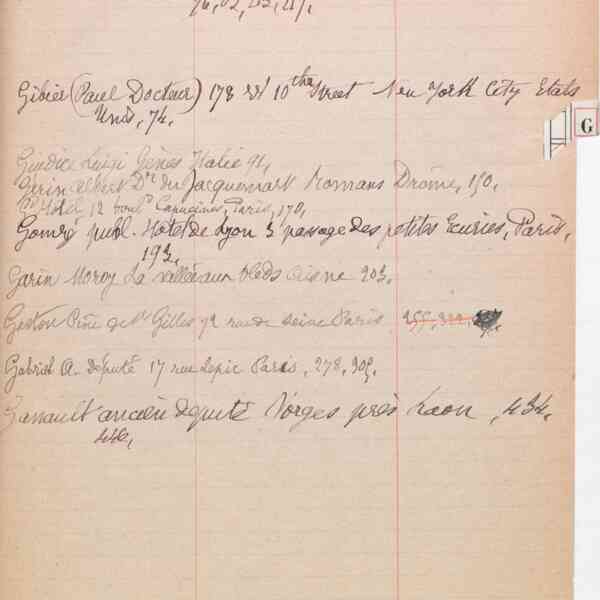 76, 82,
Gibier (Paul Docteur) 178 10th Street New York City Etats
Unis, 74,
G
Giudice Luigi Gênes Italie 91,
Gérin Albert Dr du Jacquemart Romans Drôme, 150,
Hôtel 12 bould Capucines, Paris, 170,
Hôtel de Lyon 3 passage des petites Ecuries, Paris,
193,
Garin Moroy La vallée aux bleds Aisne 203,
Gaston de St Gilles 72 rue de Seine Paris 255, 322,
Gabriel A. Député 17 rue Lepic Paris, 278, 305,
ancien député Vorges près Laon, 434,